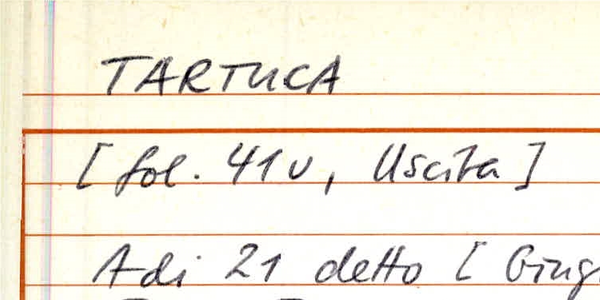 TARTUCA
[fol. 41v, Uscita]
Adi 21 detto [